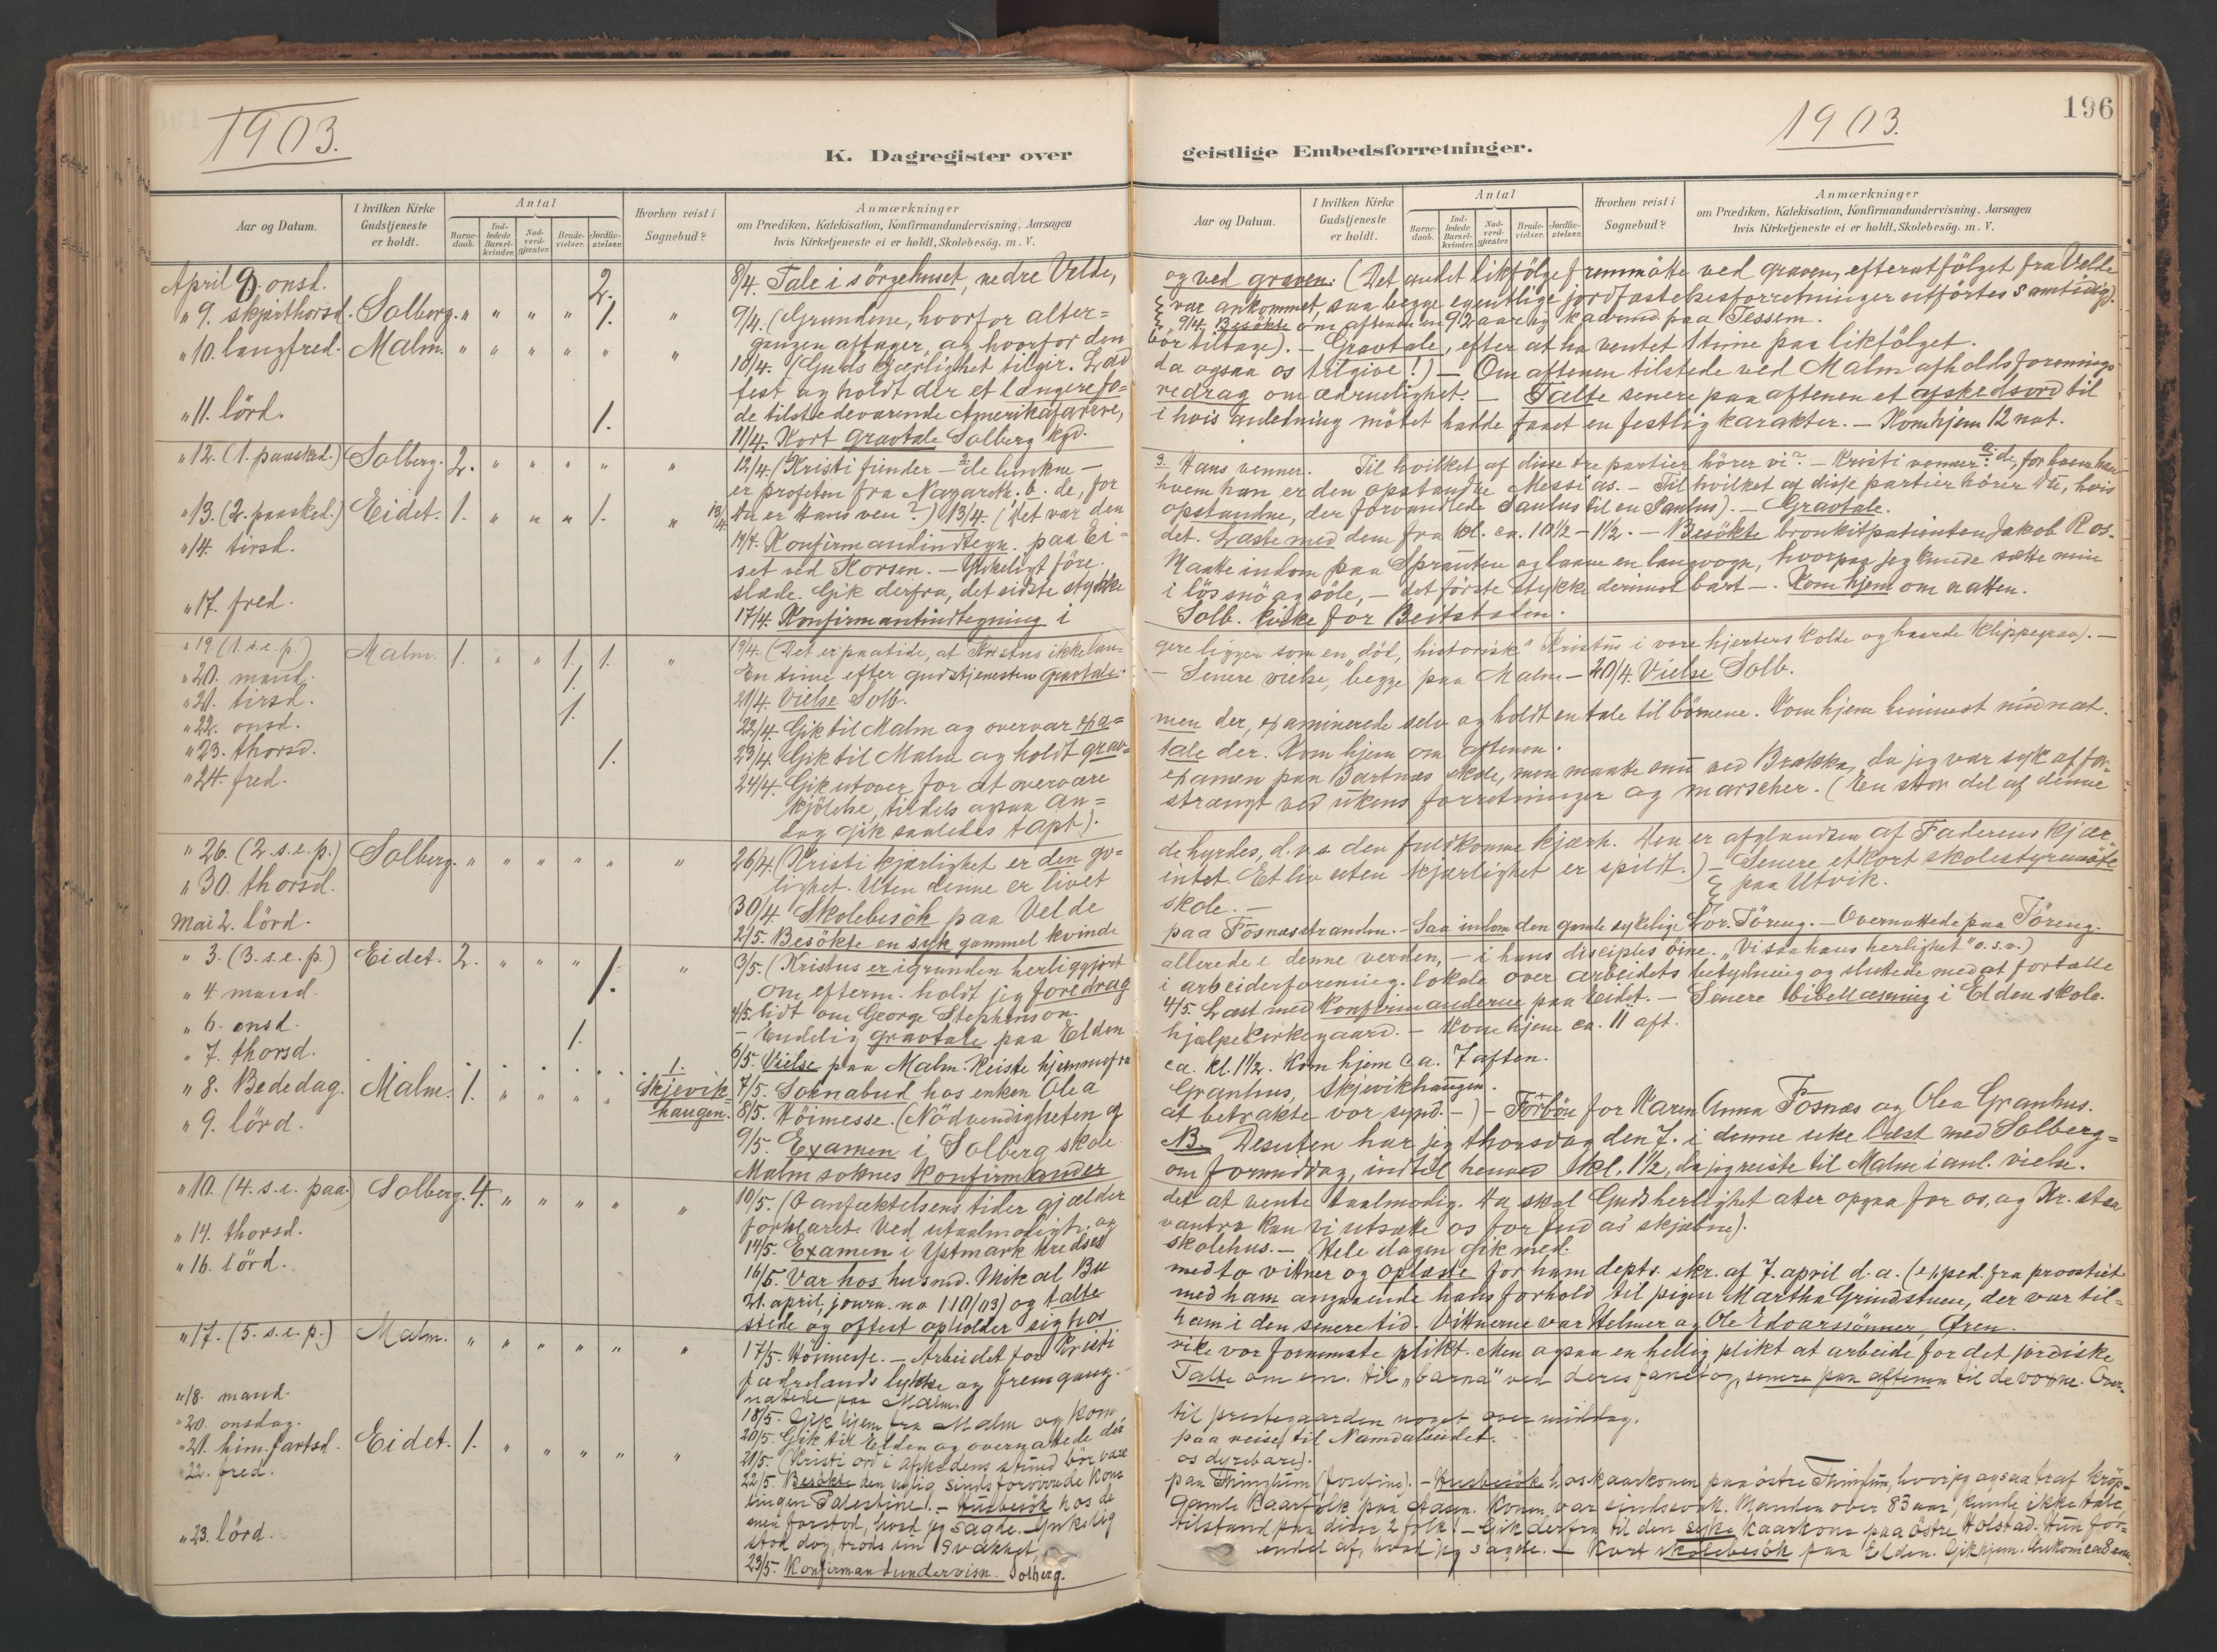 1903.
K. Dagregister over
Aar og Datum.
I hvilken Kirke Gudstjeneste er holdt.
Antal
Barne-daab.
Ind-ledede Barsel-kvinder.
Nad-verd-gjæster.
Brude-vielser.
Jordfæ-stelser.
Hvorhen reist i Sognebud?
Anmærkninger
om Prædiken, Katekisation, Konfirmandundervisning, Aarsagen
hvis Kirketjeneste ei er holdt, Skolebesøg. m. V.
April 8. onsd. 2. 8/4. Tale i sörgehuset, nedre Velde,
" 9. skjærthorsd. Solberg. " " " " 1. " 9/4. (Grundene, hvorfor alter=
gangen aftager, og hvorfor den
" 10. langfred. Malm. " " " " " " 10/4. (Guds kjærlighet tilgir. Lad
fest og holdt der et længere fo=
de tilstedeværende Amerikafarere,
" 11. lörd. 1. 11/4. Kort gravtale Solberg kgd.
" 12. (1. paasked.) Solberg. 2. " " " " " 12/4. (Kristi fiender – 2 de lunkne –
er profeten fra Nazareth. b. de, for
" 13. (2. paasked.) Eidet. 1. " " " 1. " du er Hans ven?) 13/4. (Det var den
" 14. tirsd. 14/4. Konfirmandindtegn. paa Ei-
set ved Korsen. – Ynkeligt före.
slæde. Gik derfra, det sidste stykke
" 17. fred. 17/4. Konfirmantindtegning i
" 19. (1. s. e. p.) Malm. 1. " " 1. 1. " 19/4. (Det er paatide, at Kristus ikke læn-
En time efter gudstjenesten gravtale.
" 20. mand. 1.
" 21. tirsd. 1. 21/4. Vielse Solb.
" 22. onsd. 22/4. Gik til Malm og overvar exa=
" 23. thorsd. 1. 23/4. Gik til Malm og holdt grav=
" 24. fred. 24/4. Gik utover for at overvære
kjölelse, tildels ogsaa an=
dag gik saaledes tapt).
" 26. (2. s. e. p.) Solberg. " " " " " " 26/4. (Kristi kjærlighet er den go=
lighet. Uten denne er livet
" 30. thorsd. 30/4. Skolebesök paa Velde
Mai 2. lörd. 2/5. Besökte en syk gammel kvinde
" 3. (3. s. e. p.) Eidet. 2. " " " " 3/5. (Kristus er igrunden herliggjort
om efterm. holdt jeg foredrag
" 4. mand. 1. 4/5. lidt om George Stephenson.
– Endelig gravtale paa Elden
" 6. onsd. 1. 6/5. Vielse paa Malm. Reiste hjemmefra
" 7. thorsd. 1. Skjevik-haugen. 7/5. Soknabud hos enken Olea
" 8. Bededag. Malm. 1. " " " " 8/5. Höimesse. (Nödvendigheten af
" 9. lörd. 9/5. Examen i Solberg skole.
Malm soknes Konfirmander
" 10. (4. s. e. paa.) Solberg. 4. " " " " " 10/5. (I anfæktelsens tider gjælder
forklaret. Ved utaalmodigh. og
" 14. thorsd. 14/5. Examen i Ystmark kredses
" 16. lörd. 16/5. Var hos husmd. Mikal Bu
21. april, journ. no 110/03) og talte
stede og oftest opholder sig hos
" 17. (5. s. e. p.) Malm. " " " " " " 17/5. Höimesse. – Arbeidet for Kristi
fædrelands lykke og fremgang.
nattede paa Malm.
" 18. mand. 18/5. Gik hjem fra Malm og kom
" 20. onsdag. 20/5. Gik til Elden og overnattede der
" 21. him.fartsd. Eidet. 1. " " " " " 21/5. (Kristi ord i afskedens stund bör være
" 22. fred. 22/5. Besökte den sindsforvirrede kone
Palestine). – Husbesök hos de
men forstod, hvad jeg sagde. Ynkelig
stod dog, trods sin svakhet,
" 23. lörd. 23/5. Konfirmandundervisn. Solberg.
1903.
196
geistlige Embedsforretninger.
Aar og Datum.
I hvilken Kirke Gudstjeneste er holdt.
Antal
Barne-daab.
Ind-ledede Barsel-kvinder.
Nad-verd-gjæster.
Brude-vielser.
Jordfæ-stelser.
Hvorhen reist i Sognebud?
Anmærkninger
om Prædiken, Katekisation, Konfirmandundervisning, Aarsagen
hvis Kirketjeneste ei er holdt, Skolebesøg. m. V.
og ved graven. (Det andet likfölge fremmötte ved graven, efterat fölget fra Velde
var ankommet, saa begge egentlige jordfæstelsesforretninger utförtes samtidig).
9/4. Besökte om aftenen en 92 aarig paa Tessem.
bör tiltage). – Gravtale, efter at ha ventet 1 time paa likfölget.
da ogsaa os tilgive!) – Om aftenen tilstede ved Malm afholdsforenings
redrag om ædruelighet. – Talte senere paa aftenen et afskedsord til
i hvis anledning mötet hadde faaet en festlig karakter. – Kom hjem 12 nat.
3. Hans venner. Til hvilket af disse tre partier hörer vi? – Kristi venner: a. de, for hvem han
hvem han er den opstandne Messias. – Til hvilket af disse partier hörer du, hvis
opstandne, der forvandlede Saulus til en Paulus). – Gravtale.
det. Læste med dem fra kl. ca. 10½ – 1½. – Besökte bronkitpatienten Jakob Ros-
Maatte indom paa Sprauten og laane en langvogn, hvorpaa jeg kunde sætte min
i lös snö og söle, – det förste stykke derimot bart –. Kom hjem om natten.
Solb. kirke for Beitstaden.
gere ligger som en "död, historisk" Kristus i vore hjerters kolde og haarde klippegrav). –
– Senere vielse, begge paa Malm – 20/4. Vielse Solb.
men der, examinerede selv og holdt en tale til börnene. Kom hjem henimot midnat.
tale der. Kom hjem om aftenen.
examen paa Bartnæs skole, men maatte snu ved Brækka, da jeg var syk af for-
strængt ved ukens forretninger og marscher. (En stor del af denne
de hyrdes, d.v.s. den fuldkomne kjærh. Den er afglandsen af Faderens kjær-
intet. Et liv uten kjærlighet er spildt.) – Senere et kort skolestyremöte
paa Utvik.
skole. –
paa Fosnæsstranden. – Saa indom den gamle sykelige Lor. Töring. – Overnattede paa Töring.
allerede i denne verden, – i hans disciples öine. "Vi saa hans herlighet" o.s.v.)
i arbeiderforening. lokale over arbeidets betydning og sluttede med at fortælle
4/5. Læst med konfirmanderne paa Eidet. – Senere bibellæsning i Elden skole.
hjælpekirkegaard. – Kom hjem ca. 11 aft.
ca. kl. 1½. Kom hjem ca. 7 aften.
Granhus, Skjevikhaugen.
at betrakte vor synd. –) – Forbön for Karen Anna Fosnæs og Olea Granhus.
NB. Desuten har jeg thorsdag den 7. i denne uke læst med Solberg=
om formiddag, indtil henved kl. 1½, da jeg reiste til Malm i anl. vielse.
det at vente taalmodig. Da skal Guds herlighet atter opgaa for os, og Kr. staa
vantro kan vi utsætte os for Judas' skjæbne).
skolehus. – Hele dagen gik med.
med to vitner og oplæste for ham depts. skr. af 7. april d. a. (exped. fra provstiet
med ham angaaende hans forhold til pigen Martha Grindstuen, der var til-
ham i den senere tid. Vitnerne var Helmer og Ole Edvarssönner Øren.
rike vor fornemste plikt. Men ogsaa en hellig plikt at arbeide for det jordiske
Talte om em. til "barna" ved deres fanetog, senere paa aftenen til de voxne. Over-
til prestegaarden noget over middag.
paa reise til Namdalseidet.
os dyrebare).
paa Thinglum (Josefine). – Husbesök hos kaarkonen paa östre Thinglum, hvor jeg ogsaa traf kröp-
gamle kaarfolk paa Aasen. Konen var sindssvak. Manden over 83 aar, kunde ikke tale,
tilstand paa disse 2 folk! – Gik derfra til den syke kaarkone paa östre Holstad. Hun for-
endel af, hvad jeg sagde. – Kort skolebesök paa Elden. Gik hjem. Ankom ca 8 em.